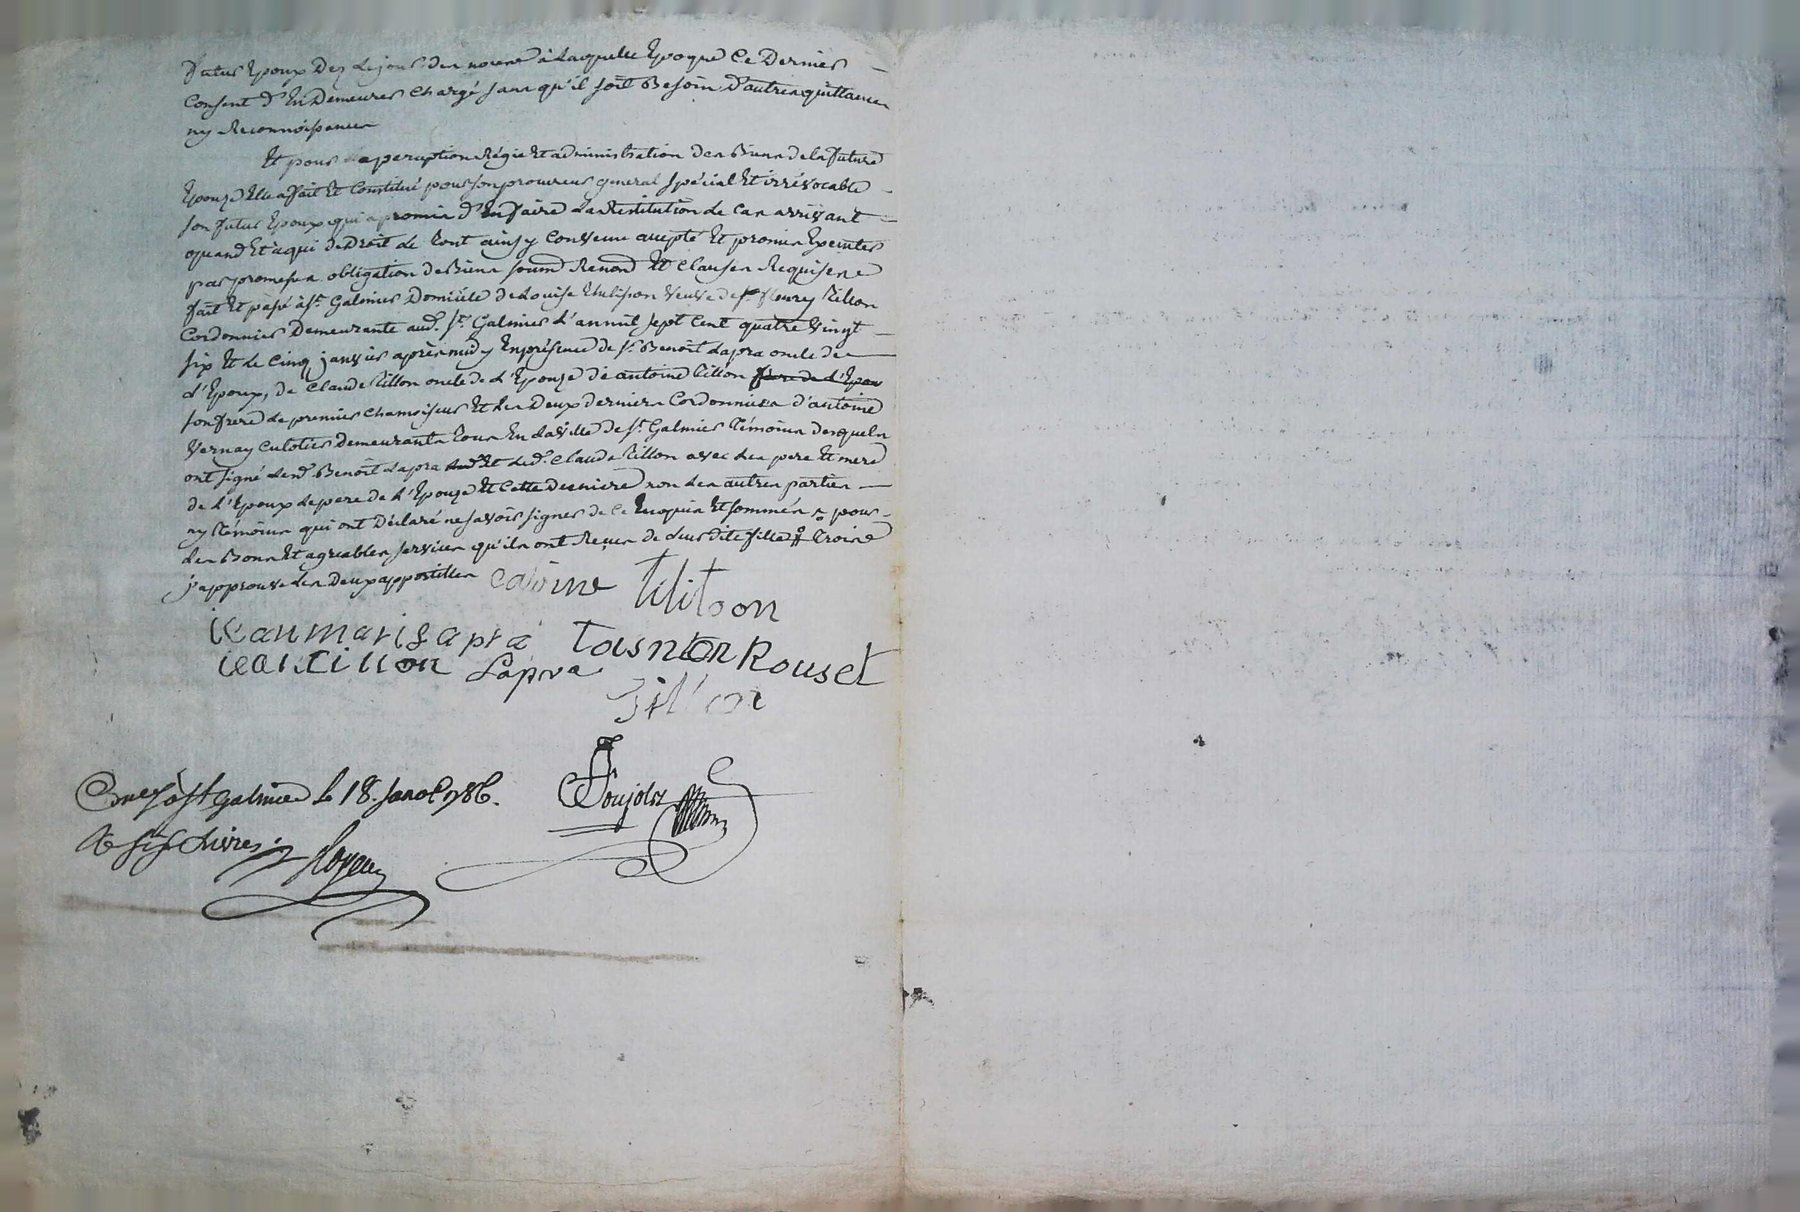 futur Epoux Dez Le jour des noces à Laquelle Epoque Ce Dernier
Consent d'En Demeurer Chargé sans qu'il soit Besoin D'autres quittances
ny Reconnoissances
Et pour La perception Régie Et administration des Biens de la future
Epouze Elle a fait Et Constitué pour son procureur general spécial Et irrévocable
son futur Epoux qui a promis d'En faire La Restitution Le Cas arrivant
quand Et à qui de Droit Le tout ainsy Convenu accepté Et promis Exeuter
par promesses obligation de Biens soum Renond Et Clauses Requises
fait Et passé à St. Galmier Domicile de Louise veuve de Sr. fleury Tillon
Cordonnier Demeurante aud. St. Galmier L'an mil sept Cent quatre vingt
six Et Le Cinq janvier après midy En présence de Sr. Benoit Lapra oncle de
L'Epoux, de Claude Tillon oncle de L'Epouze de antoine Tillon frere de L'Epou
son frere Le premier Chamoiseur Et Les Deux Derniers Cordonniers d'antoine
Vernay Culotier Demeurants tous En La ville de St. Galmier Témoins desquels
ont signé Led. Benoit Lapra Et Led. Claude Tillon avec Les pere Et mere
de L'Epoux Le pere de L'Epouze Et Cette Derniere non Les autres parties
ny Témoins qui ont Déclaré ne savoir signer de Ce Enquis Et sommés pour
Les Bons Et agreables services qu'ils ont Reçus de Leur dite fille Troise
j'approuve Les Deux appostilles
Jean mari Lapra
Rouset
Jean Tillon Lapra
Tillon
Coujolz
Con. à St galmier le 18. Janv. 1786.
R six Livres